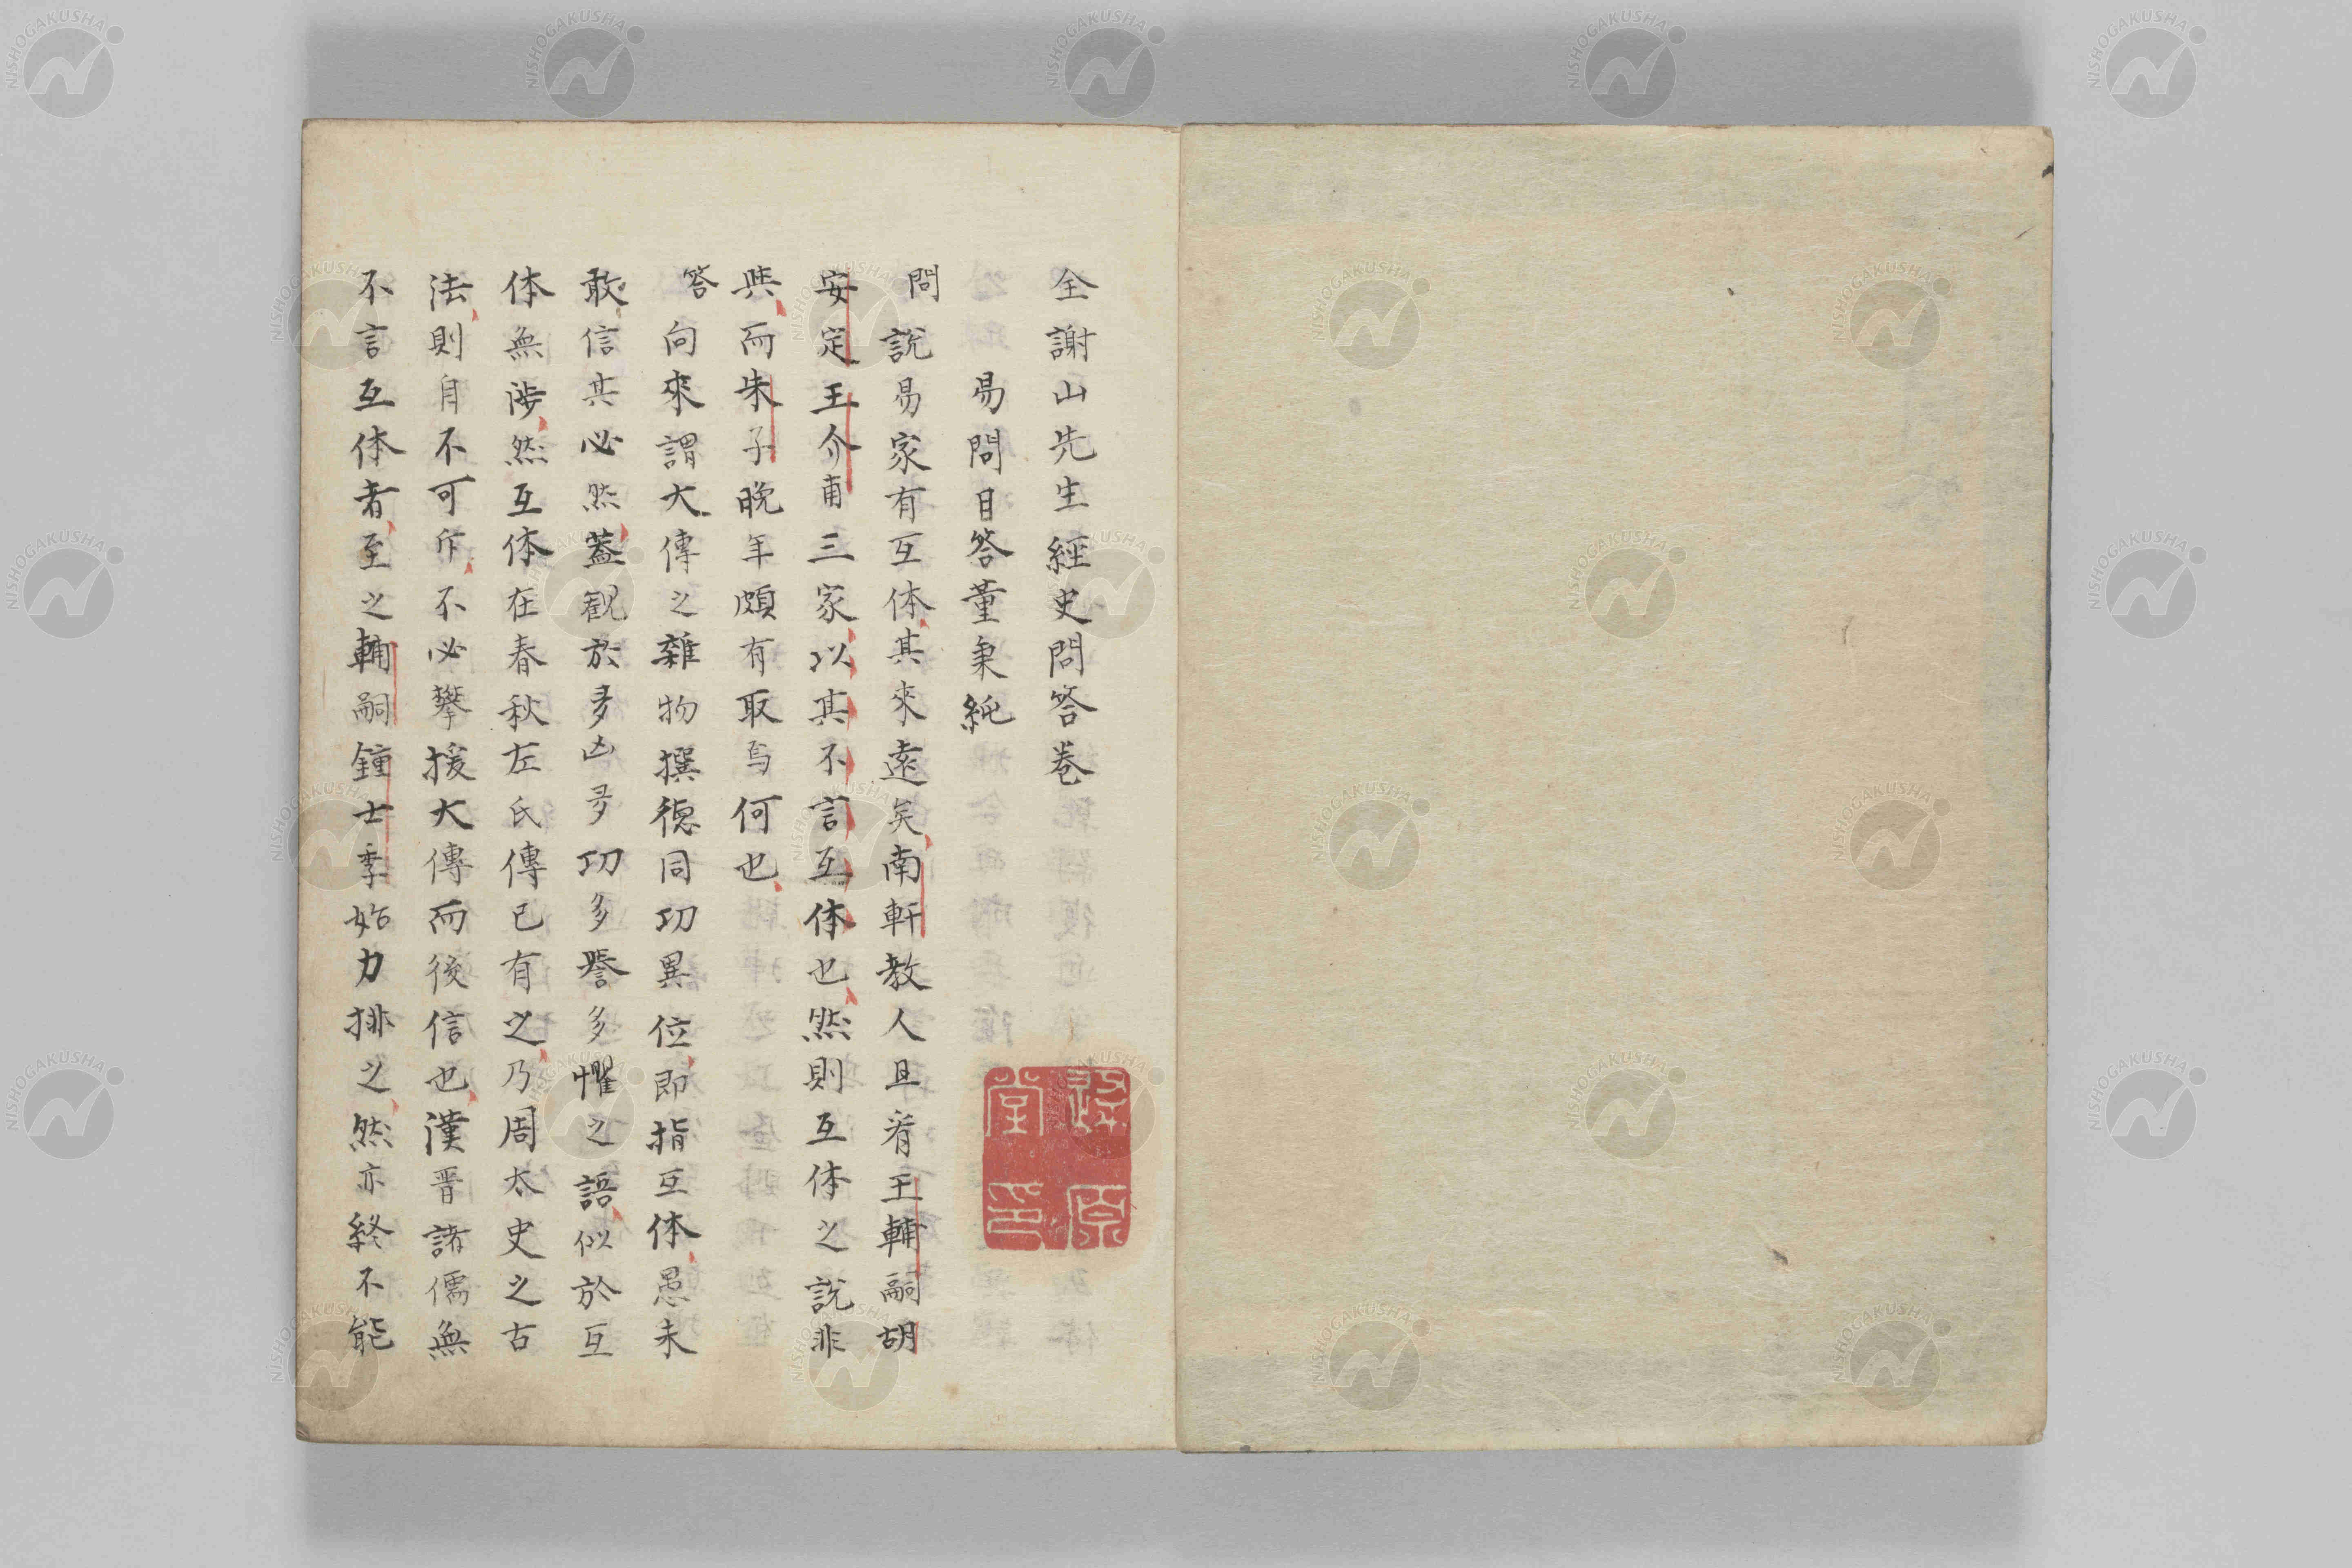 全謝山先生經史問答卷
易問目答董秉純
問說易家有互体其來遠矣南軒教人且看王輔嗣胡
安定王介甫三家以其不言互体也然則互体之說非
與而朱子晚年頗有取焉何也
答向來謂大傳之雜物撰德同功異位即指互体愚未
敢信其必然蓋觀於多凶多功多譽多懼之語似於互
体無涉然互体在春秋左氏傳已有之乃周太史之古
法則自不可斥不必攀援大傳而後信也漢晋諸儒無
不言互体者至之輔嗣鐘士季始力排之然亦終不能
NISHOGAKUSHA